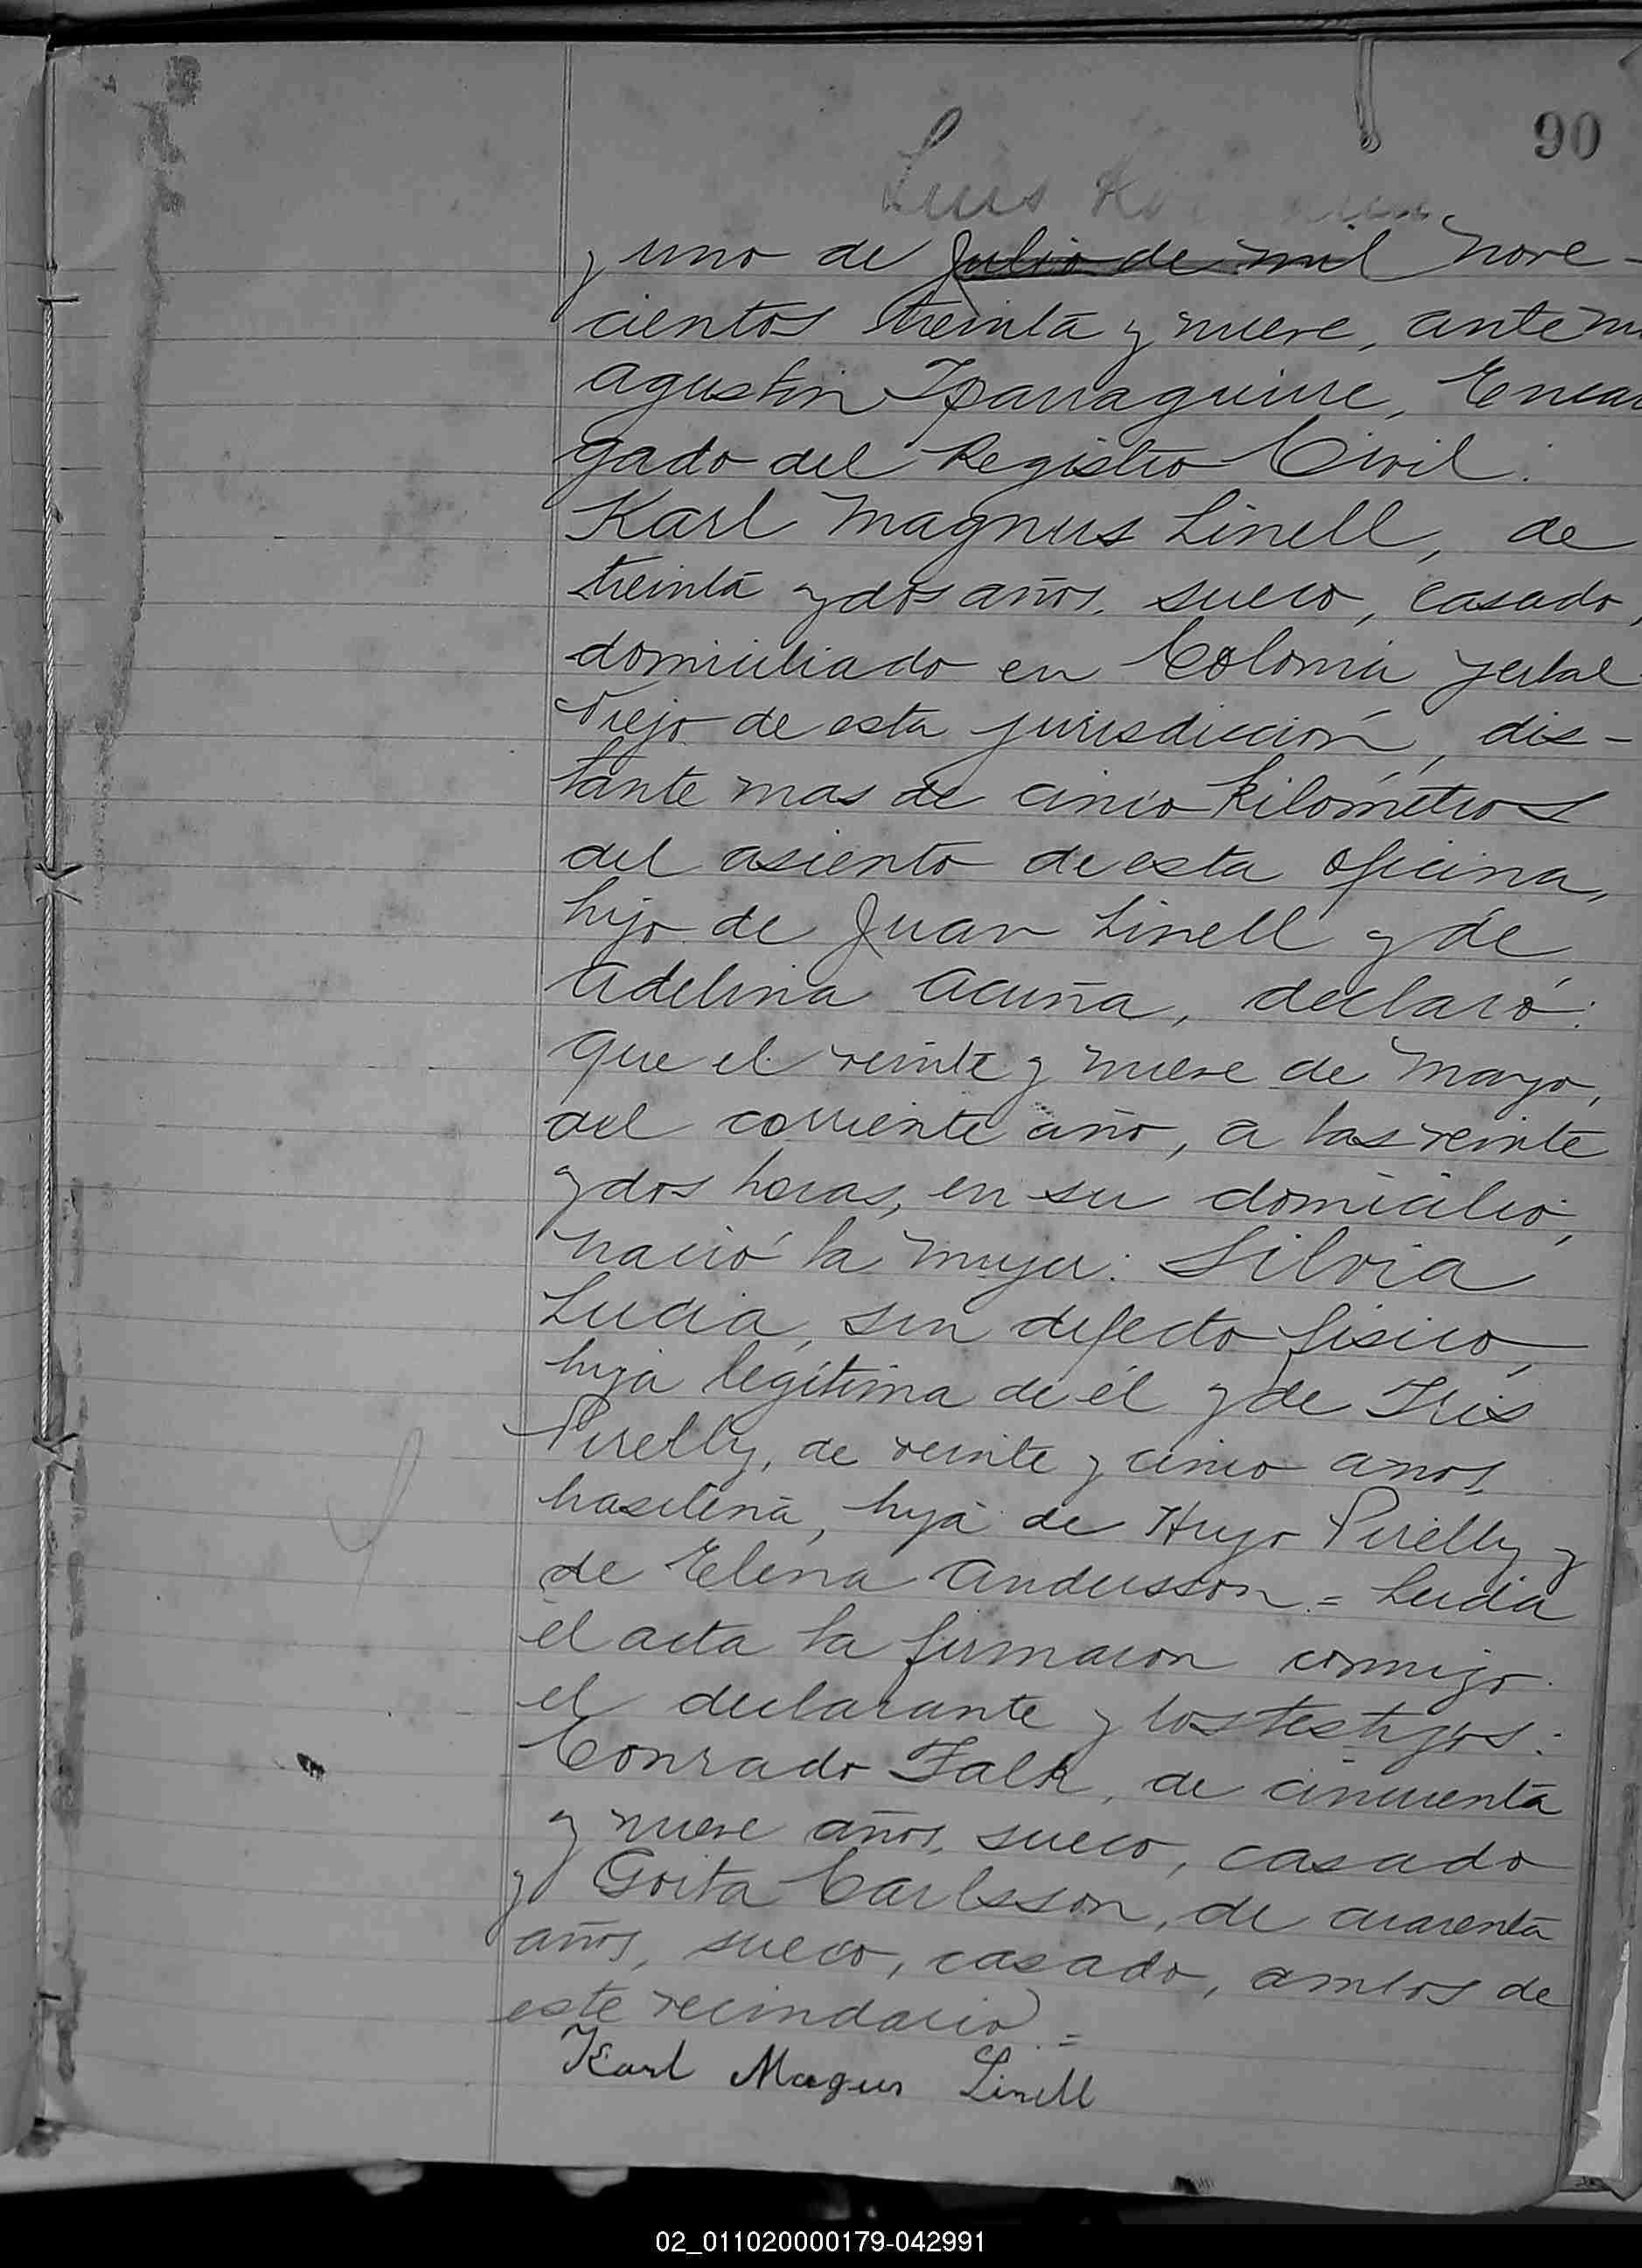 90
Luis
y uno de Julio de mil nove-
cientos treinta y nueve, ante m
Agustin Yparraguirre, Encar
gado del Registro Civil.
Karl Magnus Linell, de
treinta y dos años, sueco, casado,
domiciliado en Colonia Yerbal
Viejo de esta jurisdicción, dis-
tante mas de cinco kilómetros
del asiento de esta oficina,
hijo de Juan Linell y de
Adelina Acuña, declaró:
Que el veinte y nueve de Mayo,
del corriente año, a las veinte
y dos horas, en su domicilio,
nació la mujer: Silvia
Lucia, sin defecto fisico,
hija legítima de él y de Iris
Pirelly, de veinte y cinco años,
brasilena, hija de Hugo Pirelly y
de Elena Andersson = Leida
el acta la firmaron conmigo
el declarante y los testigos:
Conrado Falk, de cincuenta
y nueve años, sueco, casado
y Gosta Carlsson, de cuarenta
años, sueco, casado, ambos de
este vecindario =
Karl Magnus Linell
02_011020000179-042991